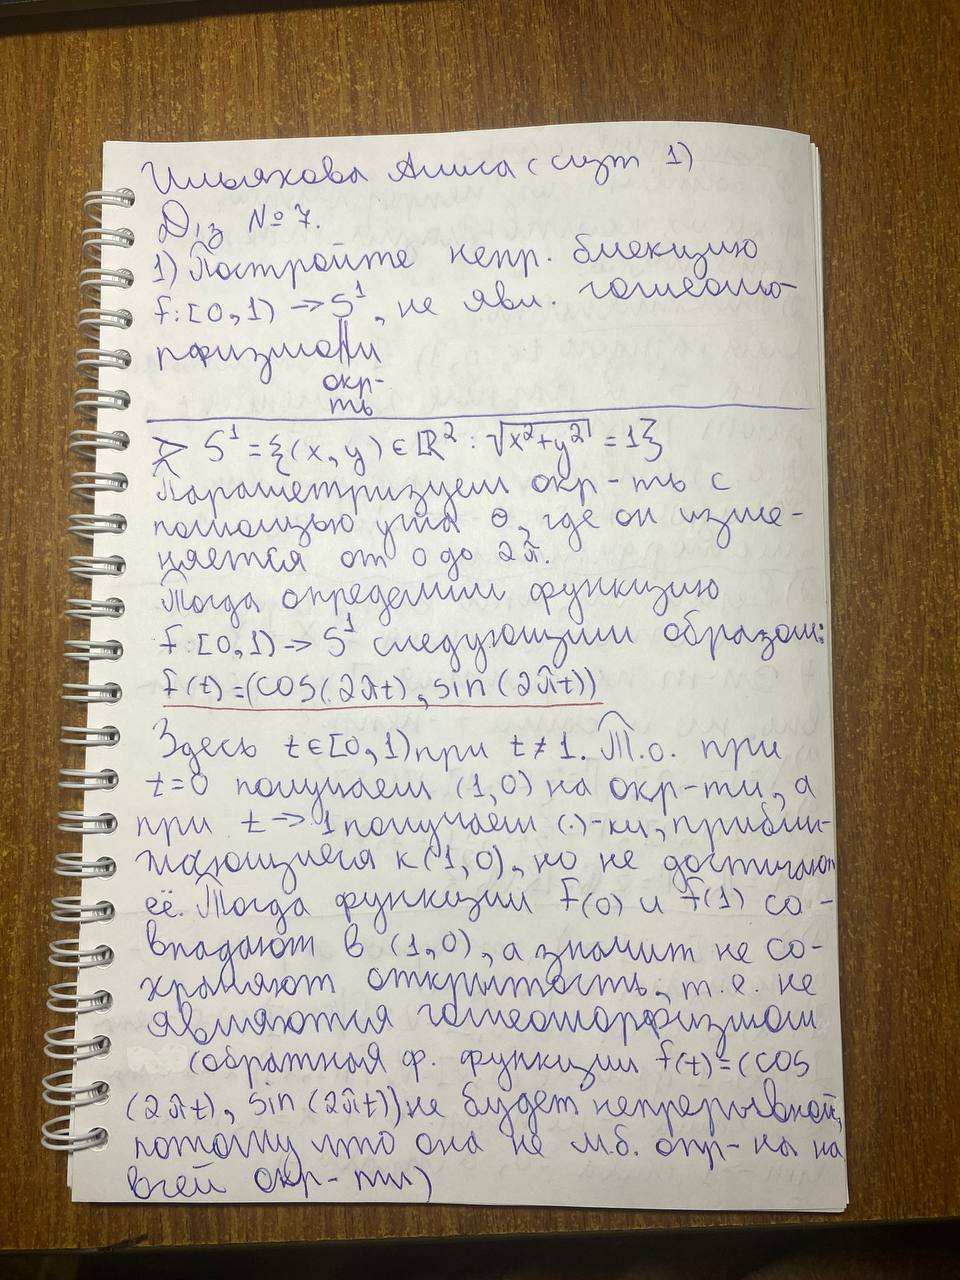 Ильякова Алиса (
1)
Д/з № 7.
1) Постройте непр. биекцию
f: [0, 1) → S¹, не явл. гомеомо-
рфизмом
окр-
ть
S¹ = {(x, y) ∈ ℝ² : √(x² + y²) = 1}
Параметризуем окр-ть с
помощью угла θ, где он изме-
няется от 0 до 2π.
Тогда определим функцию
f: [0, 1) → S¹ следующим образом:
f(t) = (cos(2πt), sin(2πt))
Здесь t ∈ [0, 1) при t ≠ 1. Т.о. при
t = 0 получаем (1, 0) на окр-ти, а
при t → 1 получаем (·)-ки, прибли-
жающиеся к (1, 0), но не достигают
её. Тогда функции f(0) и f(1) со-
впадают в (1, 0), а значит не со-
храняют открытость, т.е. не
являются гомеоморфизмом
(обратная ф. функции f(t) = (cos
(2πt), sin(2πt)) не будет непрерывной,
потому что она не м.б. опр-на на
всей окр-ти)